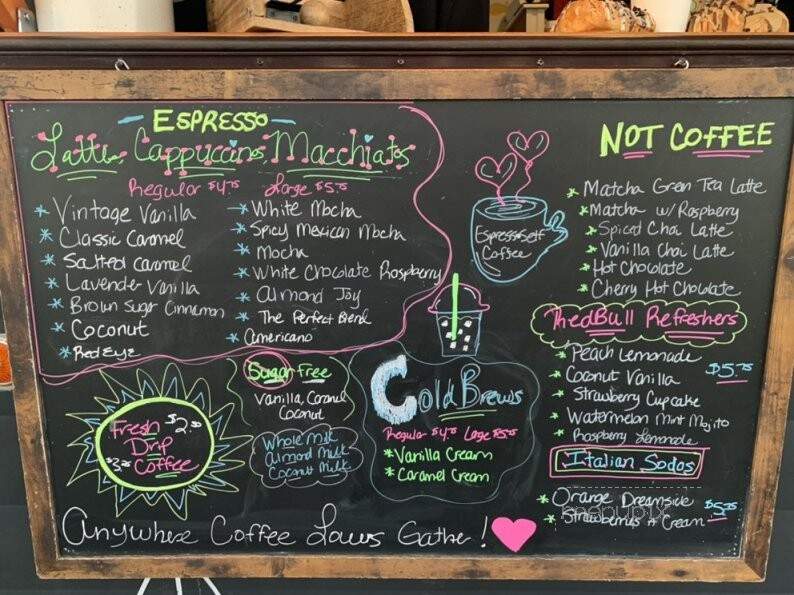 ESPRESSO
Latte Cappuccinos Macchiatos
Regular Large
* Vintage Vanilla
* Classic Caramel
* Salted Caramel
* Lavender Vanilla
* Brown Sugar Cinnamon
* Coconut
* Red Eye
* White Mocha
* Spicy Mexican Mocha
* Mocha
* White Chocolate Raspberry
* Almond Joy
* The Perfect Blend
* Americano
Espresso Self
Coffee
NOT COFFEE
* Matcha Green Tea Latte
* Matcha w/ Raspberry
* Spiced Chai Latte
* Vanilla Chai Latte
* Hot Chocolate
* Cherry Hot Chocolate
RedBull Refreshers
* Peach Lemonade
* Coconut Vanilla
* Strawberry Cupcake
* Watermelon Mint Mojito
* Raspberry Lemonade
Italian Sodas
* Orange Dreamsicle
* Strawberries n Cream
Fresh
Drip
Coffee
Sugar Free
Vanilla, Caramel
Coconut
Whole Milk
Almond Milk
Coconut Milk
Cold Brews
Regular Large
* Vanilla Cream
* Caramel Cream
Anywhere Coffee Lovers Gather!